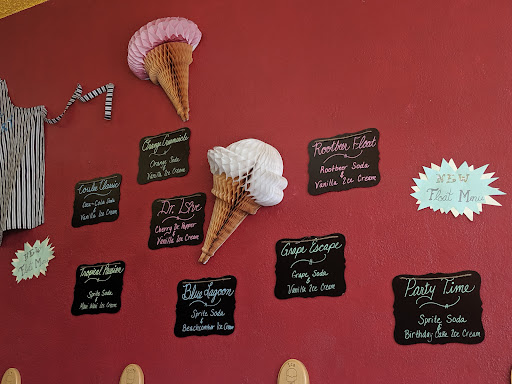 Orange Creamsicle
Orange Soda
&
Vanilla Ice Cream
Rootbeer Float
Rootbeer Soda
&
Vanilla Ice Cream
Coke Classic
Coca-Cola Soda
&
Vanilla Ice Cream
Dr. Love
Cherry Dr. Pepper
&
Vanilla Ice Cream
NEW
Float Menu
NEW
Float Menu
Tropical Passion
Sprite Soda
&
Blue Lagoon
Sprite Soda
&
Beachcomber Ice Cream
Grape Escape
Grape Soda
&
Vanilla Ice Cream
Party Time
Sprite Soda
&
Birthday Cake Ice Cream